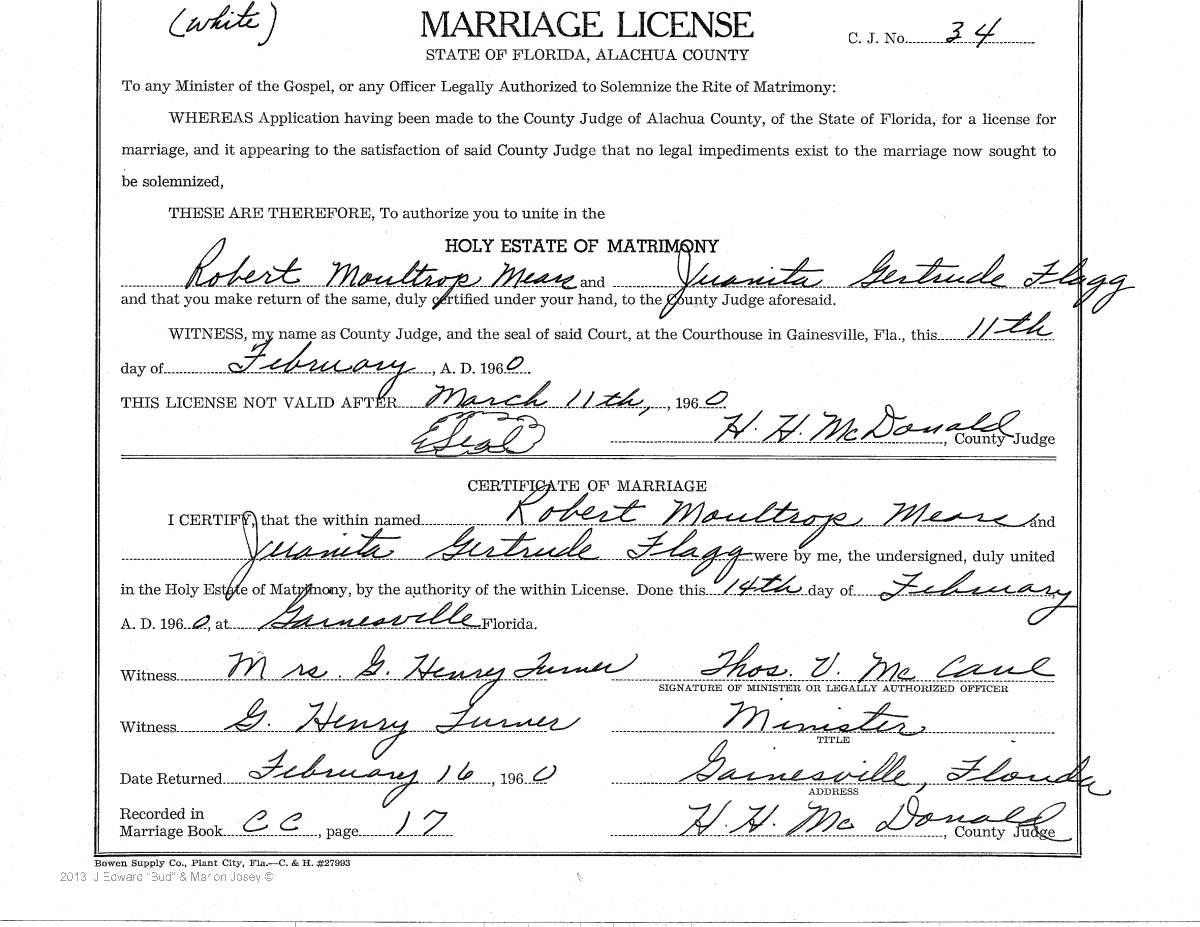 (White)
MARRIAGE LICENSE
C. J. No. 34
STATE OF FLORIDA, ALACHUA COUNTY
To any Minister of the Gospel, or any Officer Legally Authorized to Solemnize the Rite of Matrimony:
WHEREAS Application having been made to the County Judge of Alachua County, of the State of Florida, for a license for
marriage, and it appearing to the satisfaction of said County Judge that no legal impediments exist to the marriage now sought to
be solemnized,
THESE ARE THEREFORE, To authorize you to unite in the
HOLY ESTATE OF MATRIMONY
Robert Moultrop Mears and Juanita Gertrude Flagg
and that you make return of the same, duly certified under your hand, to the County Judge aforesaid.
WITNESS, my name as County Judge, and the seal of said Court, at the Courthouse in Gainesville, Fla., this 11th
day of February, A. D. 1960.
THIS LICENSE NOT VALID AFTER March 11th, , 1960.
Seal H. H. McDonald, County Judge
CERTIFICATE OF MARRIAGE
I CERTIFY, that the within named Robert Moultrop Mears and
Juanita Gertrude Flagg were by me, the undersigned, duly united
in the Holy Estate of Matrimony, by the authority of the within License. Done this 14th day of February
A. D. 1960, at Gainesville Florida.
Witness Mrs. G. Henry Turner Thos. V. McCaul
SIGNATURE OF MINISTER OR LEGALLY AUTHORIZED OFFICER
Witness G. Henry Turner Minister
TITLE
Date Returned February 16, 1960 Gainesville, Florida
ADDRESS
Recorded in
Marriage Book CC, page 17 H. H. McDonald, County Judge
Bowen Supply Co., Plant City, Fla.—C. & H. #27993
2013 J Edward "Bud" & Marion Josey ©